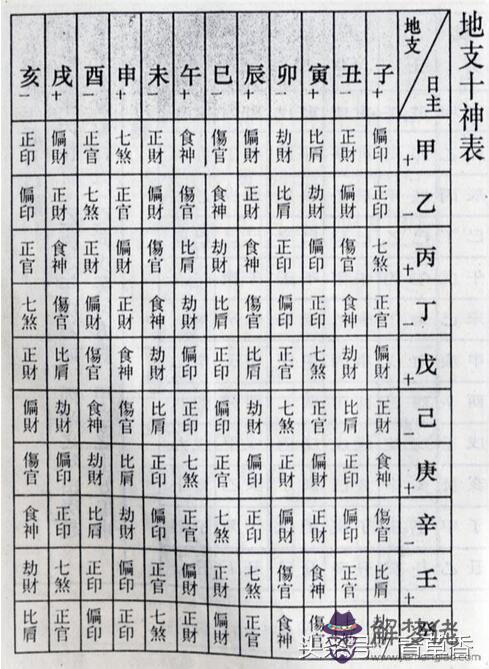 地支十神表
日主 地支
子+ 丑- 寅+ 卯- 辰+ 巳- 午+ 未- 申+ 酉- 戌+ 亥-
甲+ 偏印 正財 比肩 劫財 偏財 傷官 食神 正財 七煞 正官 偏財 正印
乙- 正印 偏財 劫財 比肩 正財 食神 傷官 偏財 正官 七煞 正財 偏印
丙+ 七煞 傷官 偏印 正印 食神 劫財 比肩 傷官 偏財 正財 食神 正官
丁- 正官 食神 正印 偏印 傷官 比肩 劫財 食神 正財 偏財 傷官 七煞
戊+ 偏財 劫財 七煞 正官 比肩 正印 偏印 劫財 食神 傷官 比肩 正財
己- 正財 比肩 正官 七煞 劫財 偏印 正印 比肩 傷官 食神 劫財 偏財
庚+ 食神 正印 偏財 正財 偏印 正官 七煞 正印 比肩 劫財 偏印 傷官
辛- 傷官 偏印 正財 偏財 正印 七煞 正官 偏印 劫財 比肩 正印 食神
壬+ 比肩 正官 食神 傷官 七煞 正財 偏財 正官 偏印 正印 七煞 劫財
癸 傷官 食神 正官 偏財 正財 七煞 正印 偏印 正官 比肩
解夢佬